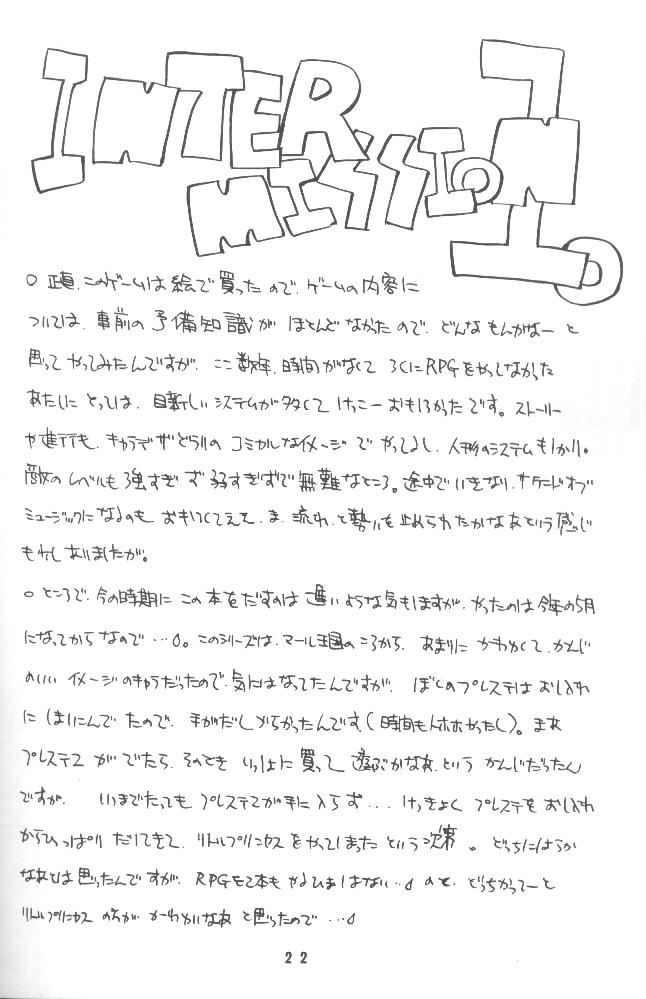 INTERMISSION
○正直、このゲームは絵で買ったので、ゲームの内容に
ついては、事前の予備知識がほとんどなかったので、どんなもんかなーと
思ってやってみたんですが、ここ数年、時間がなくてろくにRPGをやってなかった
あたしにとっては、目新しいシステムが多くてけっこーおもしろかったです。ストーリー
や進行も、キャラデザどおりのコミカルなイメージでやってよし、人形のシステムも
敵のレベルも強すぎず弱すぎずで無難なところ。途中でいきなり、サウンドオブ
ミュージックになるのもおもしろくてええ、ま、流れと勢いを止められたかなあという感じ
もしありましたが。
○ところで、今の時期にこの本をだすのは遅いような気もしますが、やったのは今年の5月
になってからなので…。このシリーズは、マール王国のころから、あまりにかわいくて、かんじ
のいいイメージのキャラだったので、気にはなってたんですが、ぼくのプレステはおしいれ
にはいってたので、手がだしづらかったんです(時間もなかったし)。まあ
プレステ2がでたら、そのときいっしょに買って遊ぶかなあ、というかんじだったん
ですが、いつまでたってもプレステ2が手に入らず...けっきょくプレステをおしいれ
からひっぱりだしてきて、リトルプリンセスをやってしまったという次第。どっちにしようか
なあとは思ったんですが、RPGを2本もやるひまはない…ので、どっちかってーと
リトルプリンセスの方がかーわいいなあと思ったので…
22